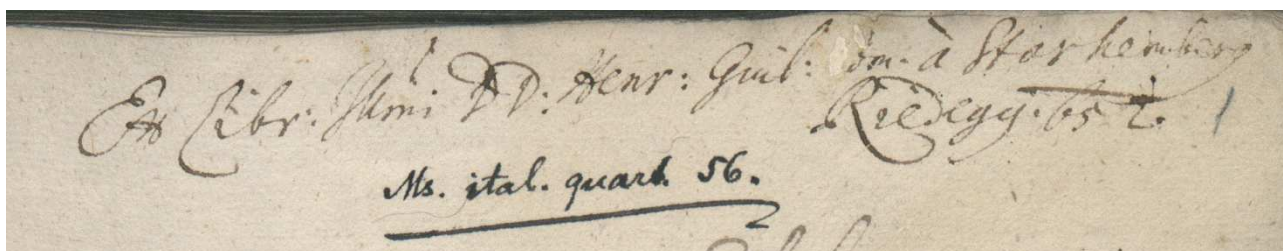 Ex Libr: Illmi DD: Henr: Guil: Com. à Starhemberg
Riedegg. 65
Ms. ital. quart. 56.